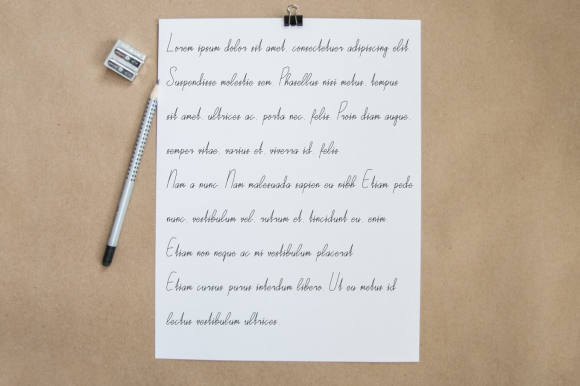 Lorem ipsum dolor sit amet, consectetuer adipiscing elit.
Suspendisse molestie sem. Phasellus nisi metus, tempus
sit amet, ultrices ac, porta nec, felis. Proin diam augue,
semper vitae, varius et, viverra id, felis.
Nam a nunc. Nam malesuada sapien eu nibh. Etiam pede
nunc, vestibulum vel, rutrum et, tincidunt eu, enim.
Etiam non neque ac mi vestibulum placerat.
Etiam cursus purus interdum libero. Ut eu metus id
lectus vestibulum ultrices.